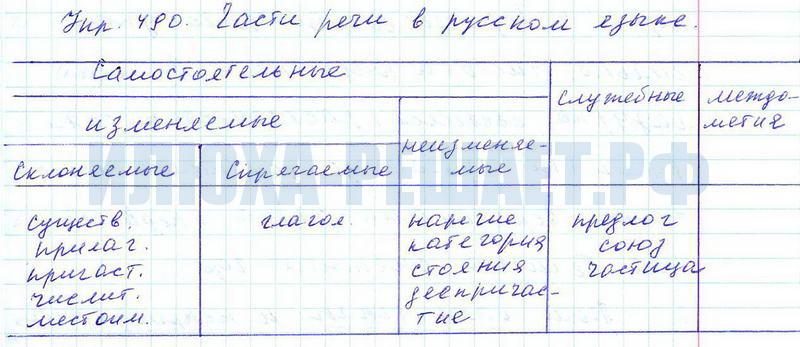 Упр. 490. Части речи в русском языке.
Самостоятельные
служебные
междо-
метия
изменяемые
неизменяе-
мые
Склоняемые
Спрягаемые
ИЛЮХА-РЕШАЕТ.РФ
существ.
прилаг.
пригаст.
числит.
местоим.
глагол.
наречие
категория
стояния
деепричас-
тие
предлог
союз
частица